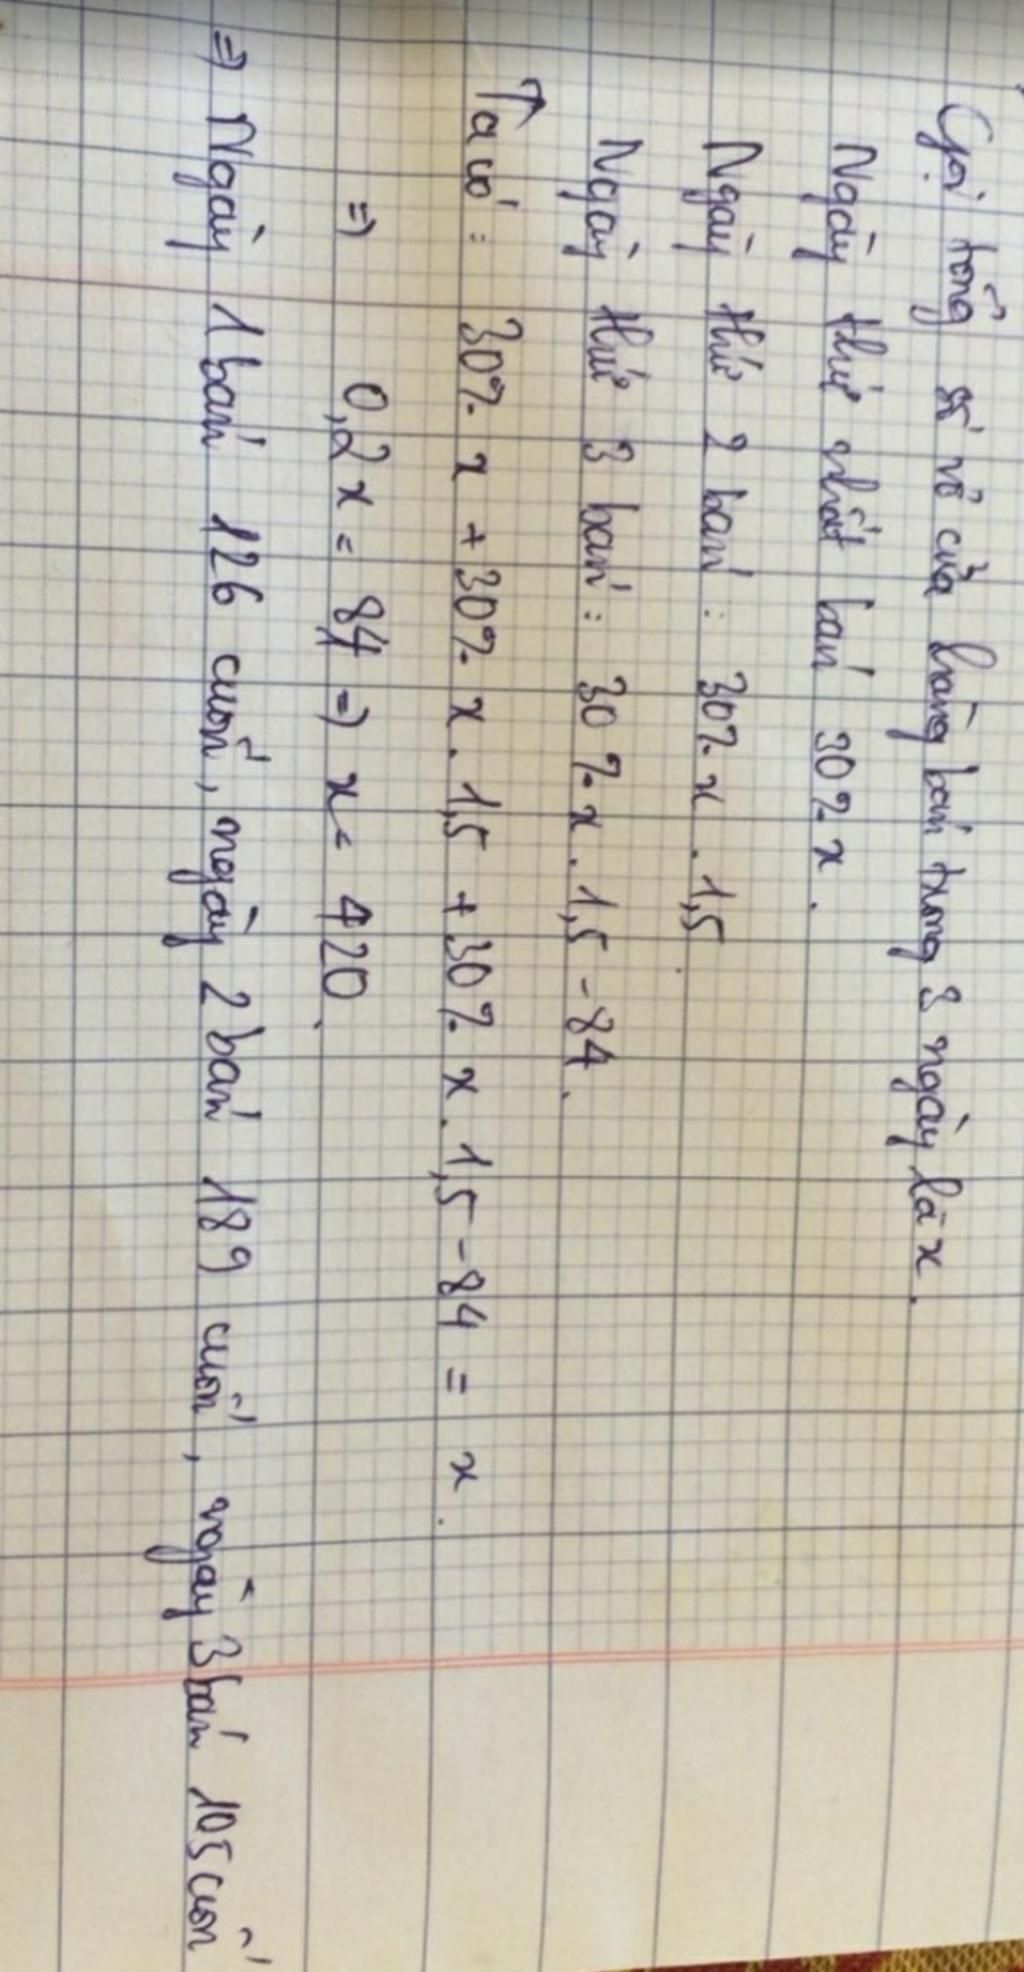 Gọi tổng số vở cửa hàng bán trong 3 ngày là x.
Ngày thứ nhất bán 30% x.
Ngày thứ 2 bán : 30% x . 1,5.
Ngày thứ 3 bán : 30 % x . 1,5 - 84.
Ta có : 30% x + 30% x . 1,5 + 30% x . 1,5 - 84 = x.
=> 0,2x = 84 => x = 420.
=> Ngày 1 bán 126 cuốn, ngày 2 bán 189 cuốn, ngày 3 bán 105 cuốn